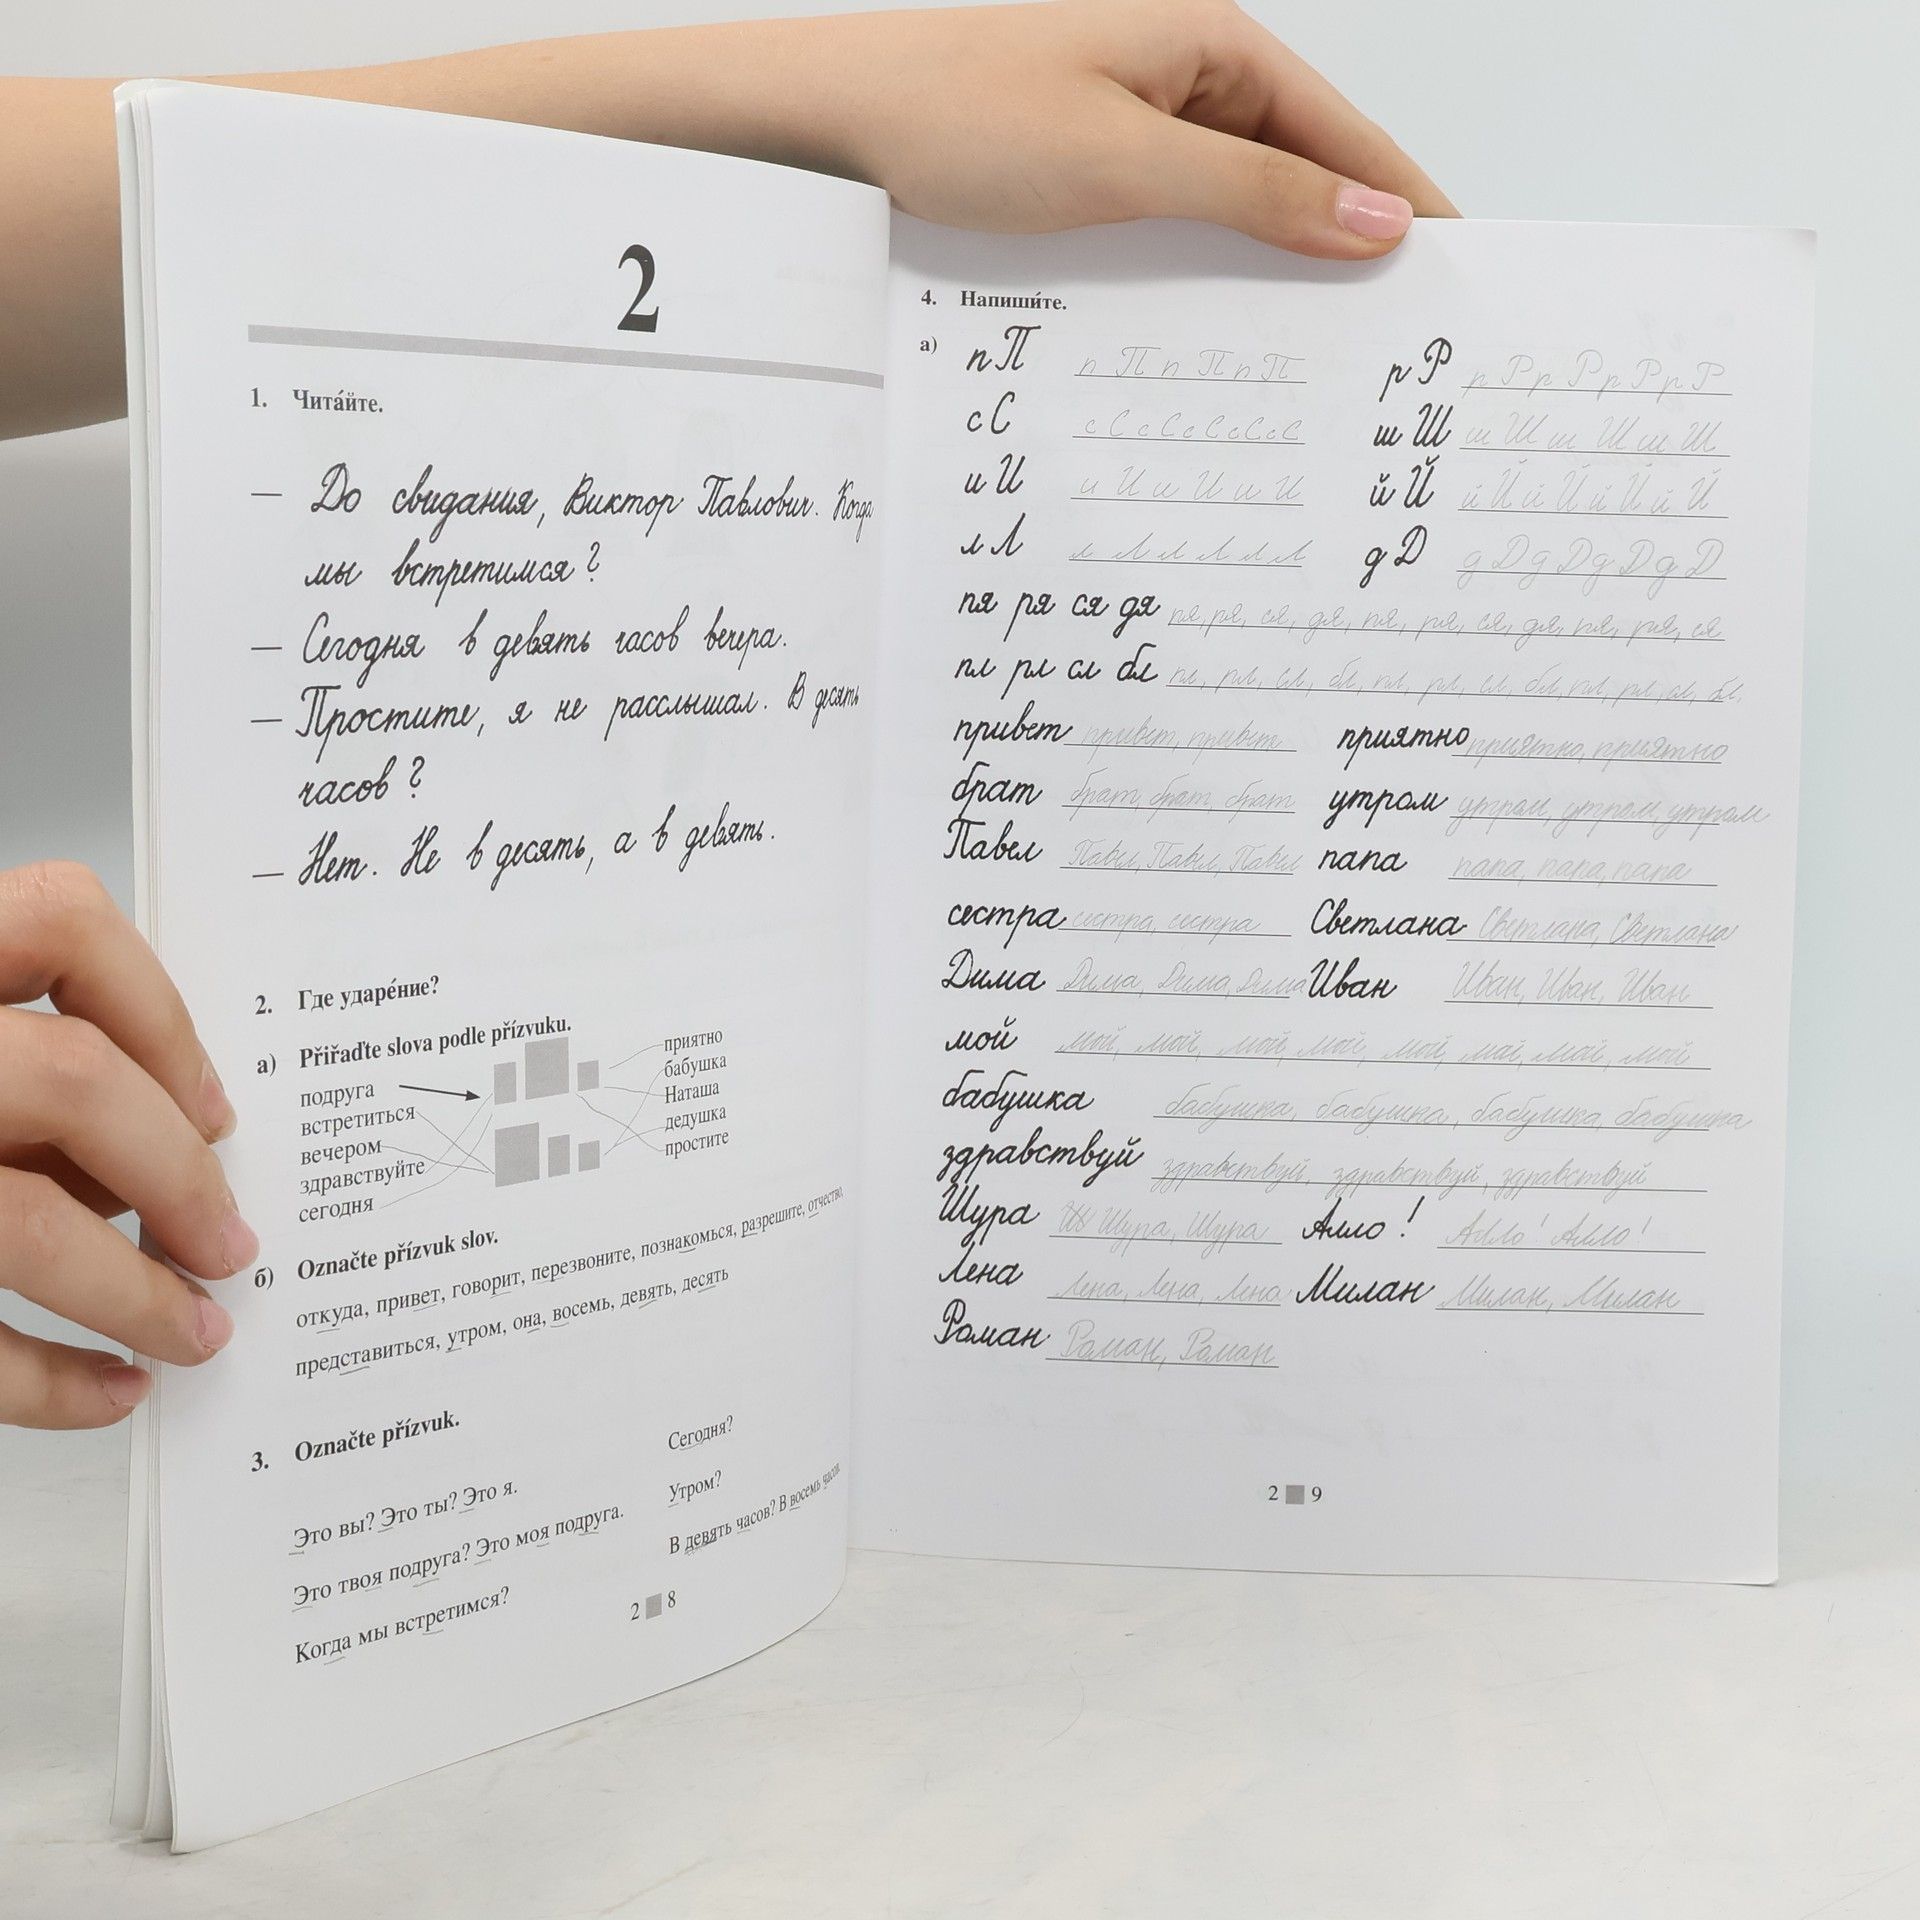 2
1. Чита́йте.
— До свидания, Виктор Павлович. Когда
мы встретимся?
— Сегодня в девять часов вечера.
— Простите, я не расслышал. В десять
часов?
— Нет. Не в десять, а в девять.
2. Где ударе́ние?
а) Přiřaďte slova podle přízvuku.
подруга
встретиться
вечером
здравствуйте
сегодня
приятно
бабушка
Наташа
дедушка
простите
б) Označte přízvuk slov.
откуда, привет, говорит, перезвоните, познакомься, разрешите, отчество,
представиться, утром, она, восемь, девять, десять
3. Označte přízvuk.
Это вы? Это ты? Это я.
Это твоя подруга? Это моя подруга.
Когда мы встретимся?
Сегодня?
Утром?
В девять часов? В восемь часов.
2 8
4. Напиши́те.
а) п П п П п П п П р Р р Р р Р р Р р Р
с С с С с С с С с С с С ш Ш ш Ш ш Ш ш Ш
и И и И и И и И й Й й Й й Й й Й й Й
л Л л Л л Л л Л д Д д Д д Д д Д д Д
пя ря ся дя пя, ря, ся, дя, пя, ря, ся, дя, пя, ря, ся
пл рл сл бл пл, рл, сл, бл, пл, рл, сл, бл, пл, рл, сл, бл,
привет привет, привет приятно приятно, приятно
брат брат, брат, брат утром утром, утром, утром
Павел Павел, Павел, Павел папа папа, папа, папа
сестра сестра, сестра Светлана Светлана, Светлана
Дима Дима, Дима, Дима Иван Иван, Иван, Иван
мой мой, мой, мой, мой, мой, мой, мой, мой
бабушка бабушка, бабушка, бабушка, бабушка
здравствуй здравствуй, здравствуй, здравствуй
Шура Шура, Шура Алло! Алло! Алло!
Лена Лена, Лена, Лена Милан Милан, Милан
Роман Роман, Роман
2 9